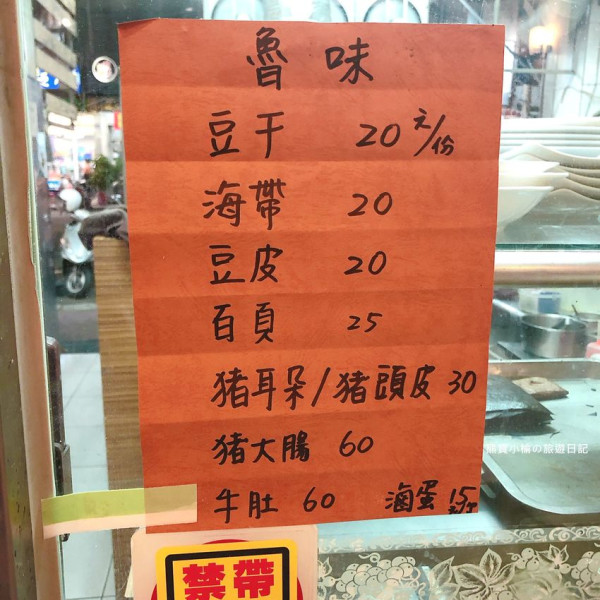 魯味
豆干 20元/份
海帶 20
豆皮 20
百頁 25
猪耳朵/猪頭皮 30
猪大腸 60
牛肚 60 滷蛋 15
禁帶
熊寶小榆の旅遊日記